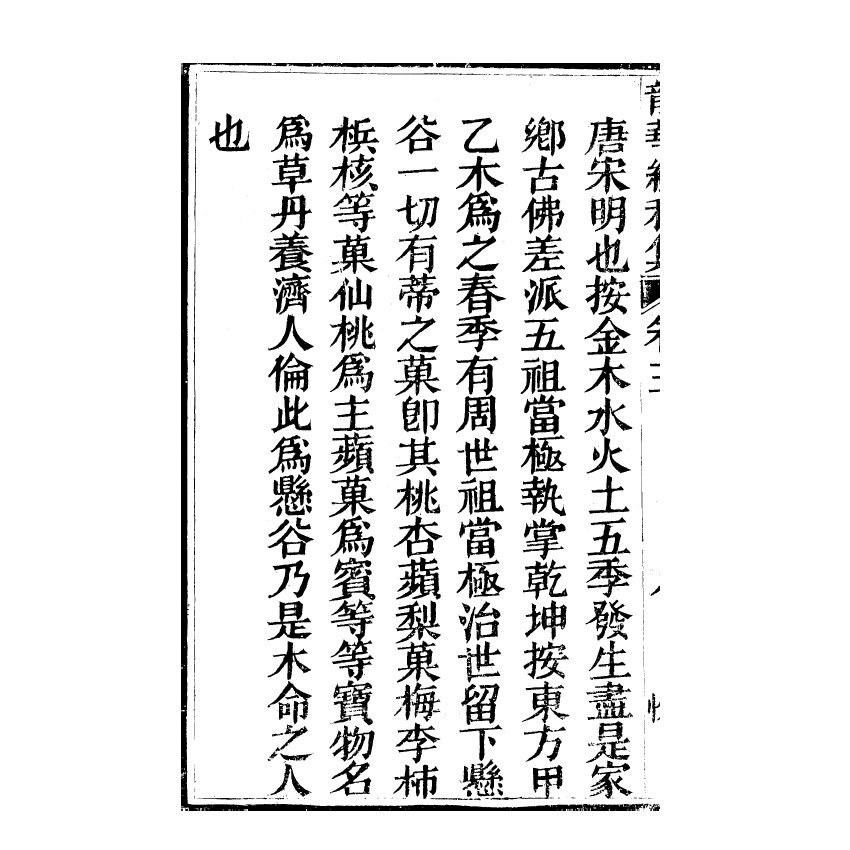 唐宋明也按金木水火土五季發生盡是家
鄉古佛差派五祖當極執掌乾坤按東方甲
乙木爲之春季有周世祖當極治世留下懸
谷一切有蒂之菓卽其桃杏蘋梨菓梅李柿
梹核等菓仙桃爲主蘋菓爲賓等等寶物名
爲草丹養濟人倫此爲懸谷乃是木命之人
也